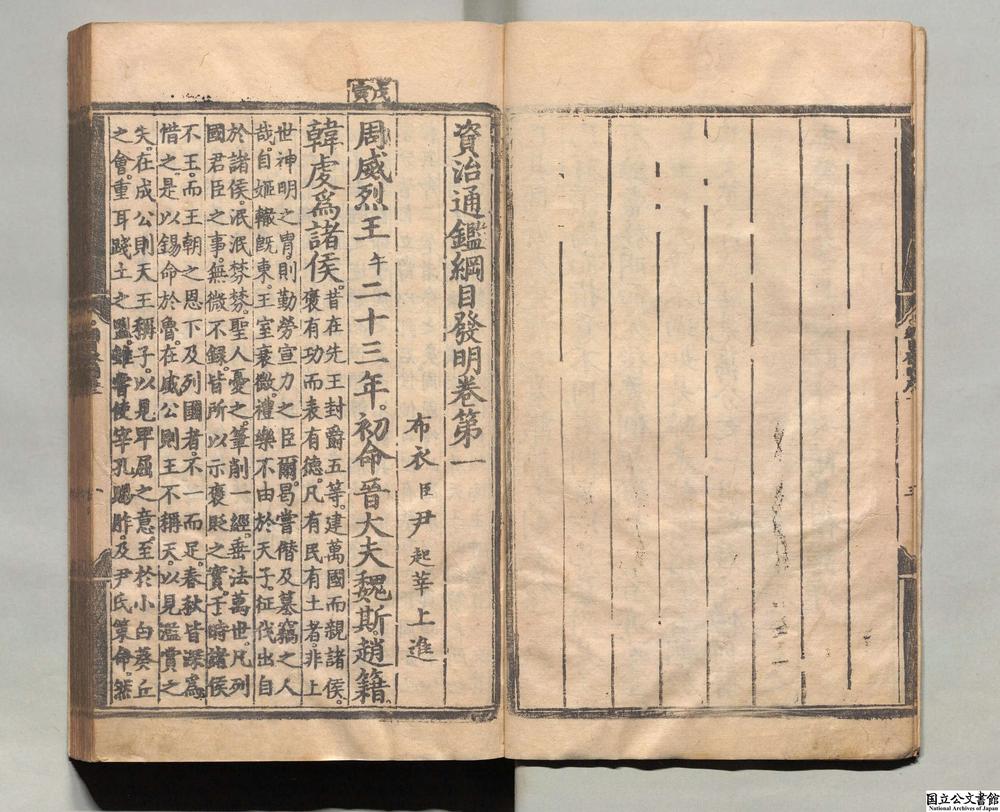 資治通鑑綱目發明卷第一
布衣臣尹起莘上進
戊寅
周威烈王午二十三年。初命晉大夫魏斯。趙籍。
韓虔爲諸侯。昔在先王封爵五等。建萬國而親諸侯。
褒有功而表有德。凡有民有土者。非上
世神明之胄。則勤勞宣力之臣爾。曷嘗僭及墓竊之人
哉。自姬轍旣東。王室衰微。禮樂不由於天子。征伐出自
於諸侯。泯泯棼棼。聖人憂之。筆削一經。垂法萬世。凡列
國君臣之事。無微不錄。皆所以示褒貶之實。于時諸侯
不王。而王朝之恩下及列國者。不一而足。春秋皆深爲
惜之。是以錫命於魯。在威公則王不稱天。以見濫賞之
失。在成公則天王稱子。以見卑屈之意。至於小白葵丘
之會。重耳踐土之盟。雖嘗使宰孔賜胙。及尹氏策命。然
國立公文書館
National Archives of Japan